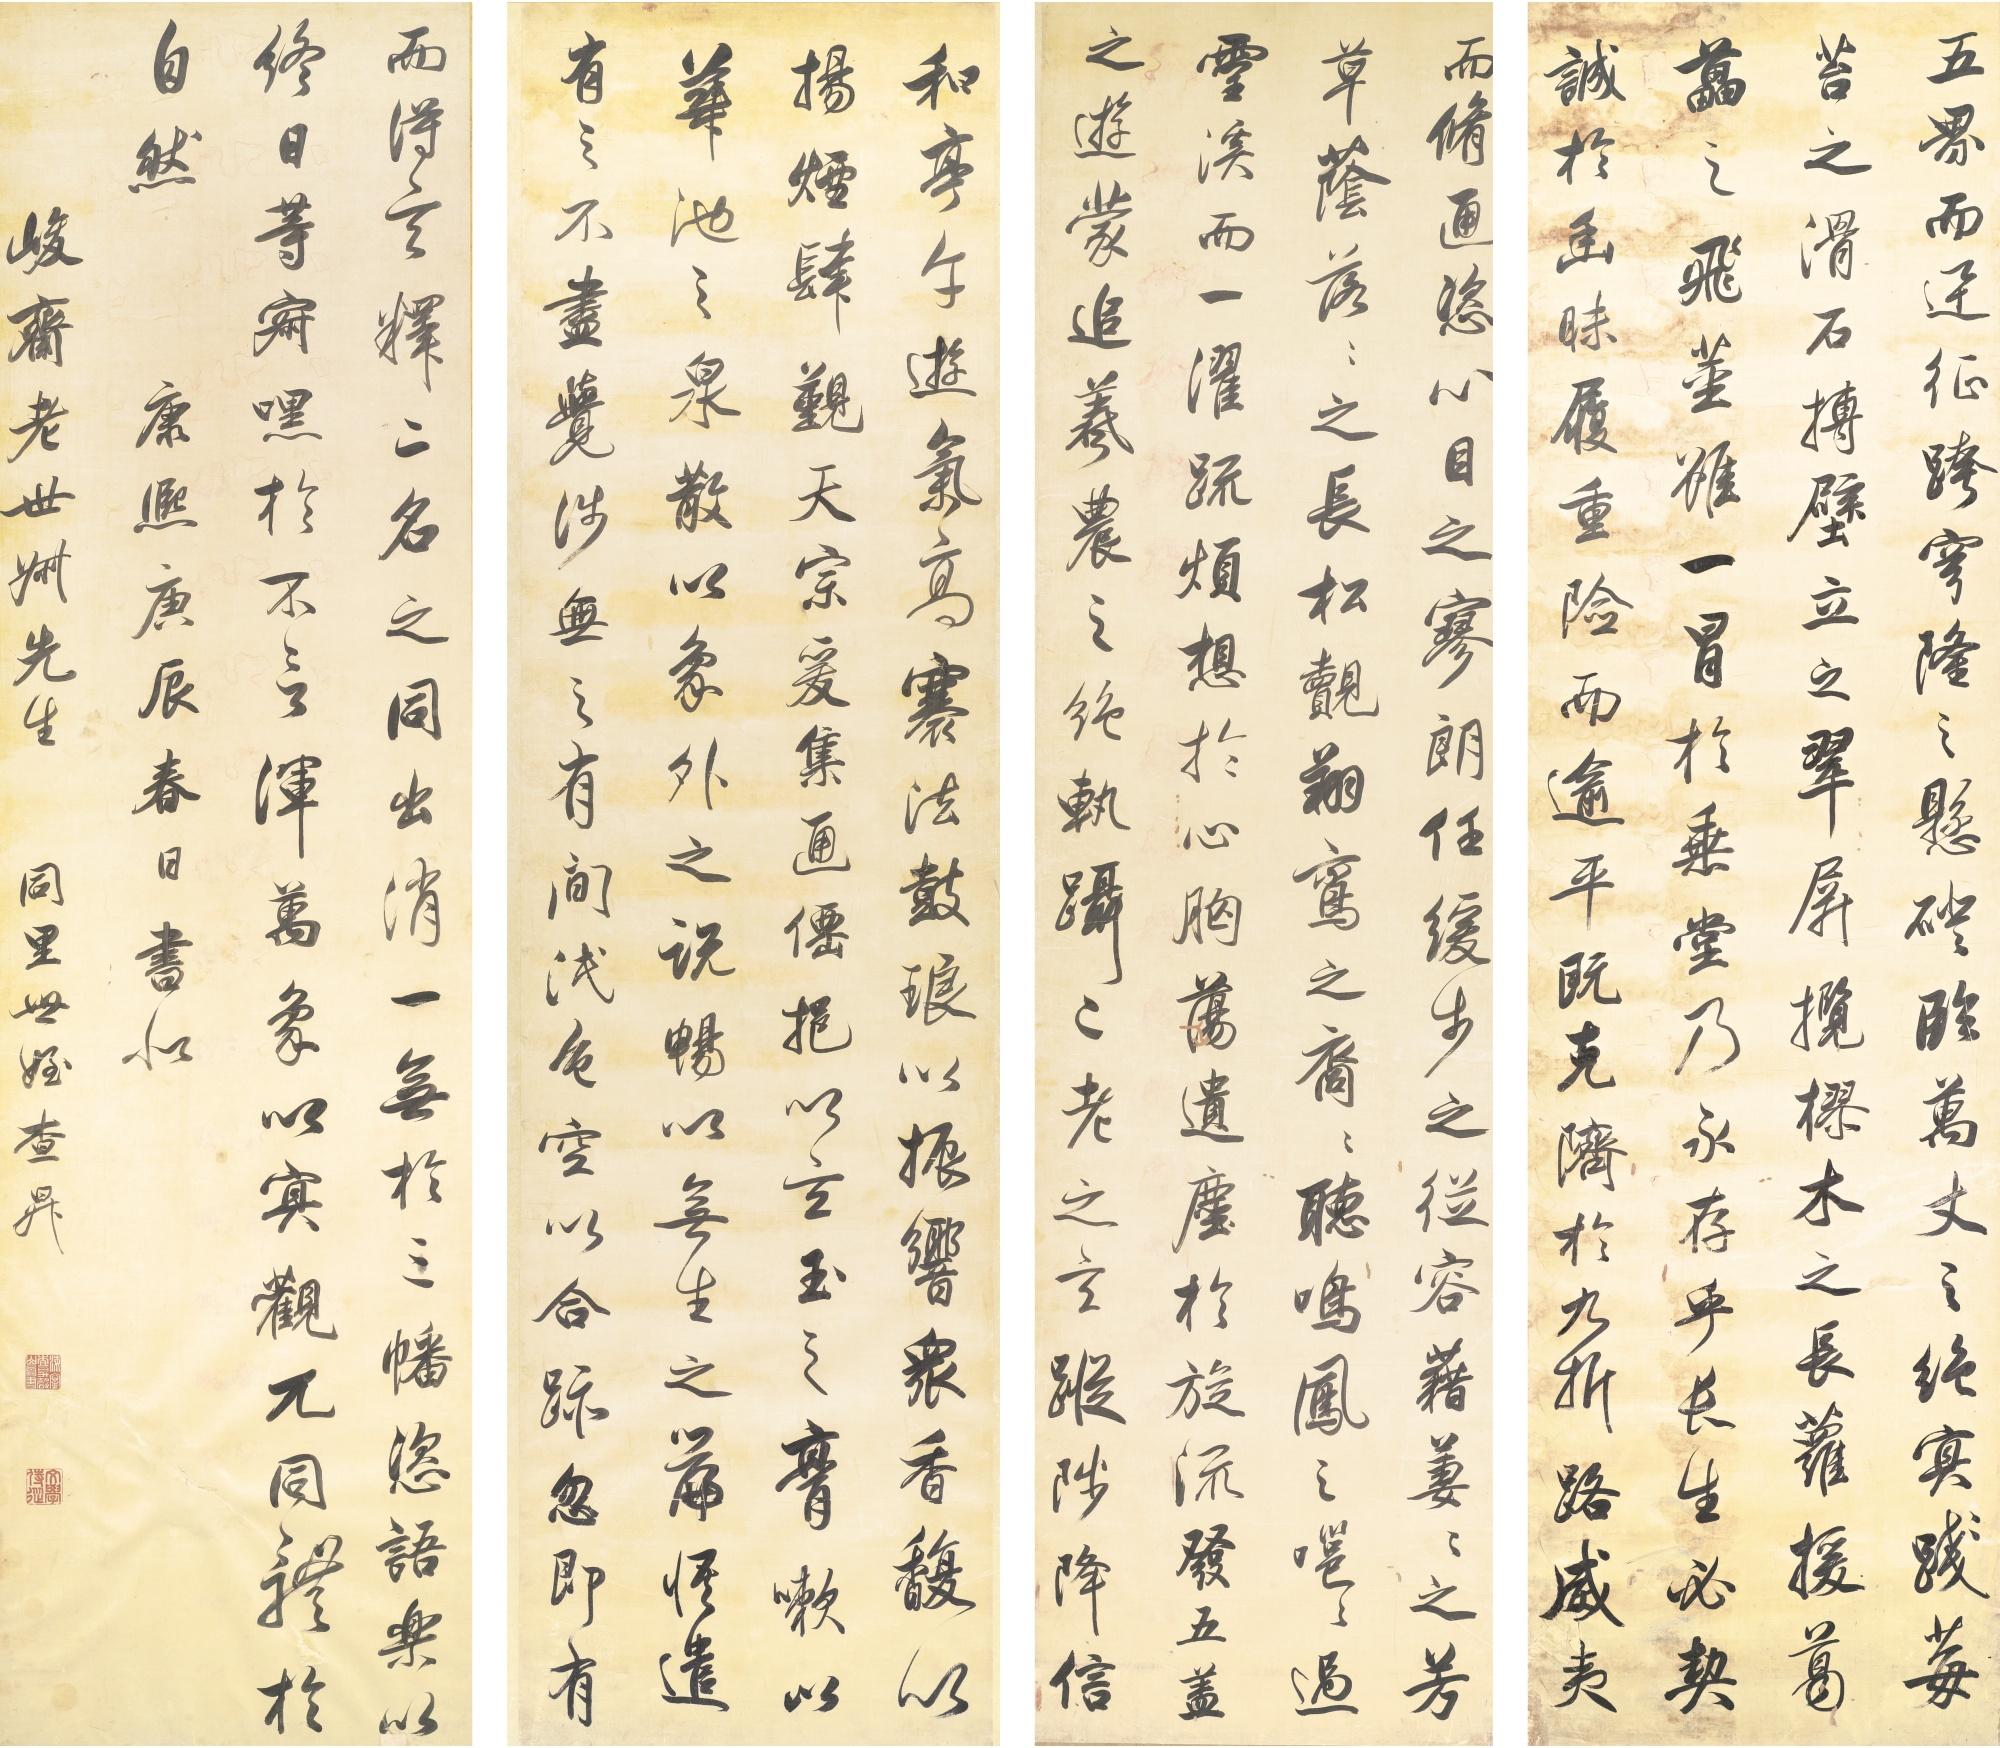 五界而迅征跨穹隆之懸磴臨萬丈之絕冥踐莓
苔之滑石搏壁立之翠屏攬樛木之長蘿援葛
藟之飛莖雖一冒於垂堂乃永存乎長生必契
誠於幽昧履重險而逾平既克隮於九折路威夷
而脩通恣心目之寥朗任緩步之從容藉萋〻之芳
草蔭落〻之長松覿翔鸞之裔〻聽鳴鳳之嗈〻過
靈溪而一濯疏煩想於心胸蕩遺塵於旋流發五蓋
之遊蒙追羲農之絕軌躡二老之玄蹤陟降信
和亭午遊氣高褰法鼓琅以振響衆香馥以
揚煙肆覲天宗爰集通僊挹以玄玉之膏嗽以
華池之泉散以象外之說暢以無生之篇悟遣
有之不盡覺涉無之有間泯色空以合跡忽即有
而得玄釋二名之同出消一無於三幡恣語樂以
終日等寂嘿於不言渾萬象以冥觀兀同體於
自然
康熙庚辰春日書似
峻齋老世叔先生
同里世姪查昇
文學侍從